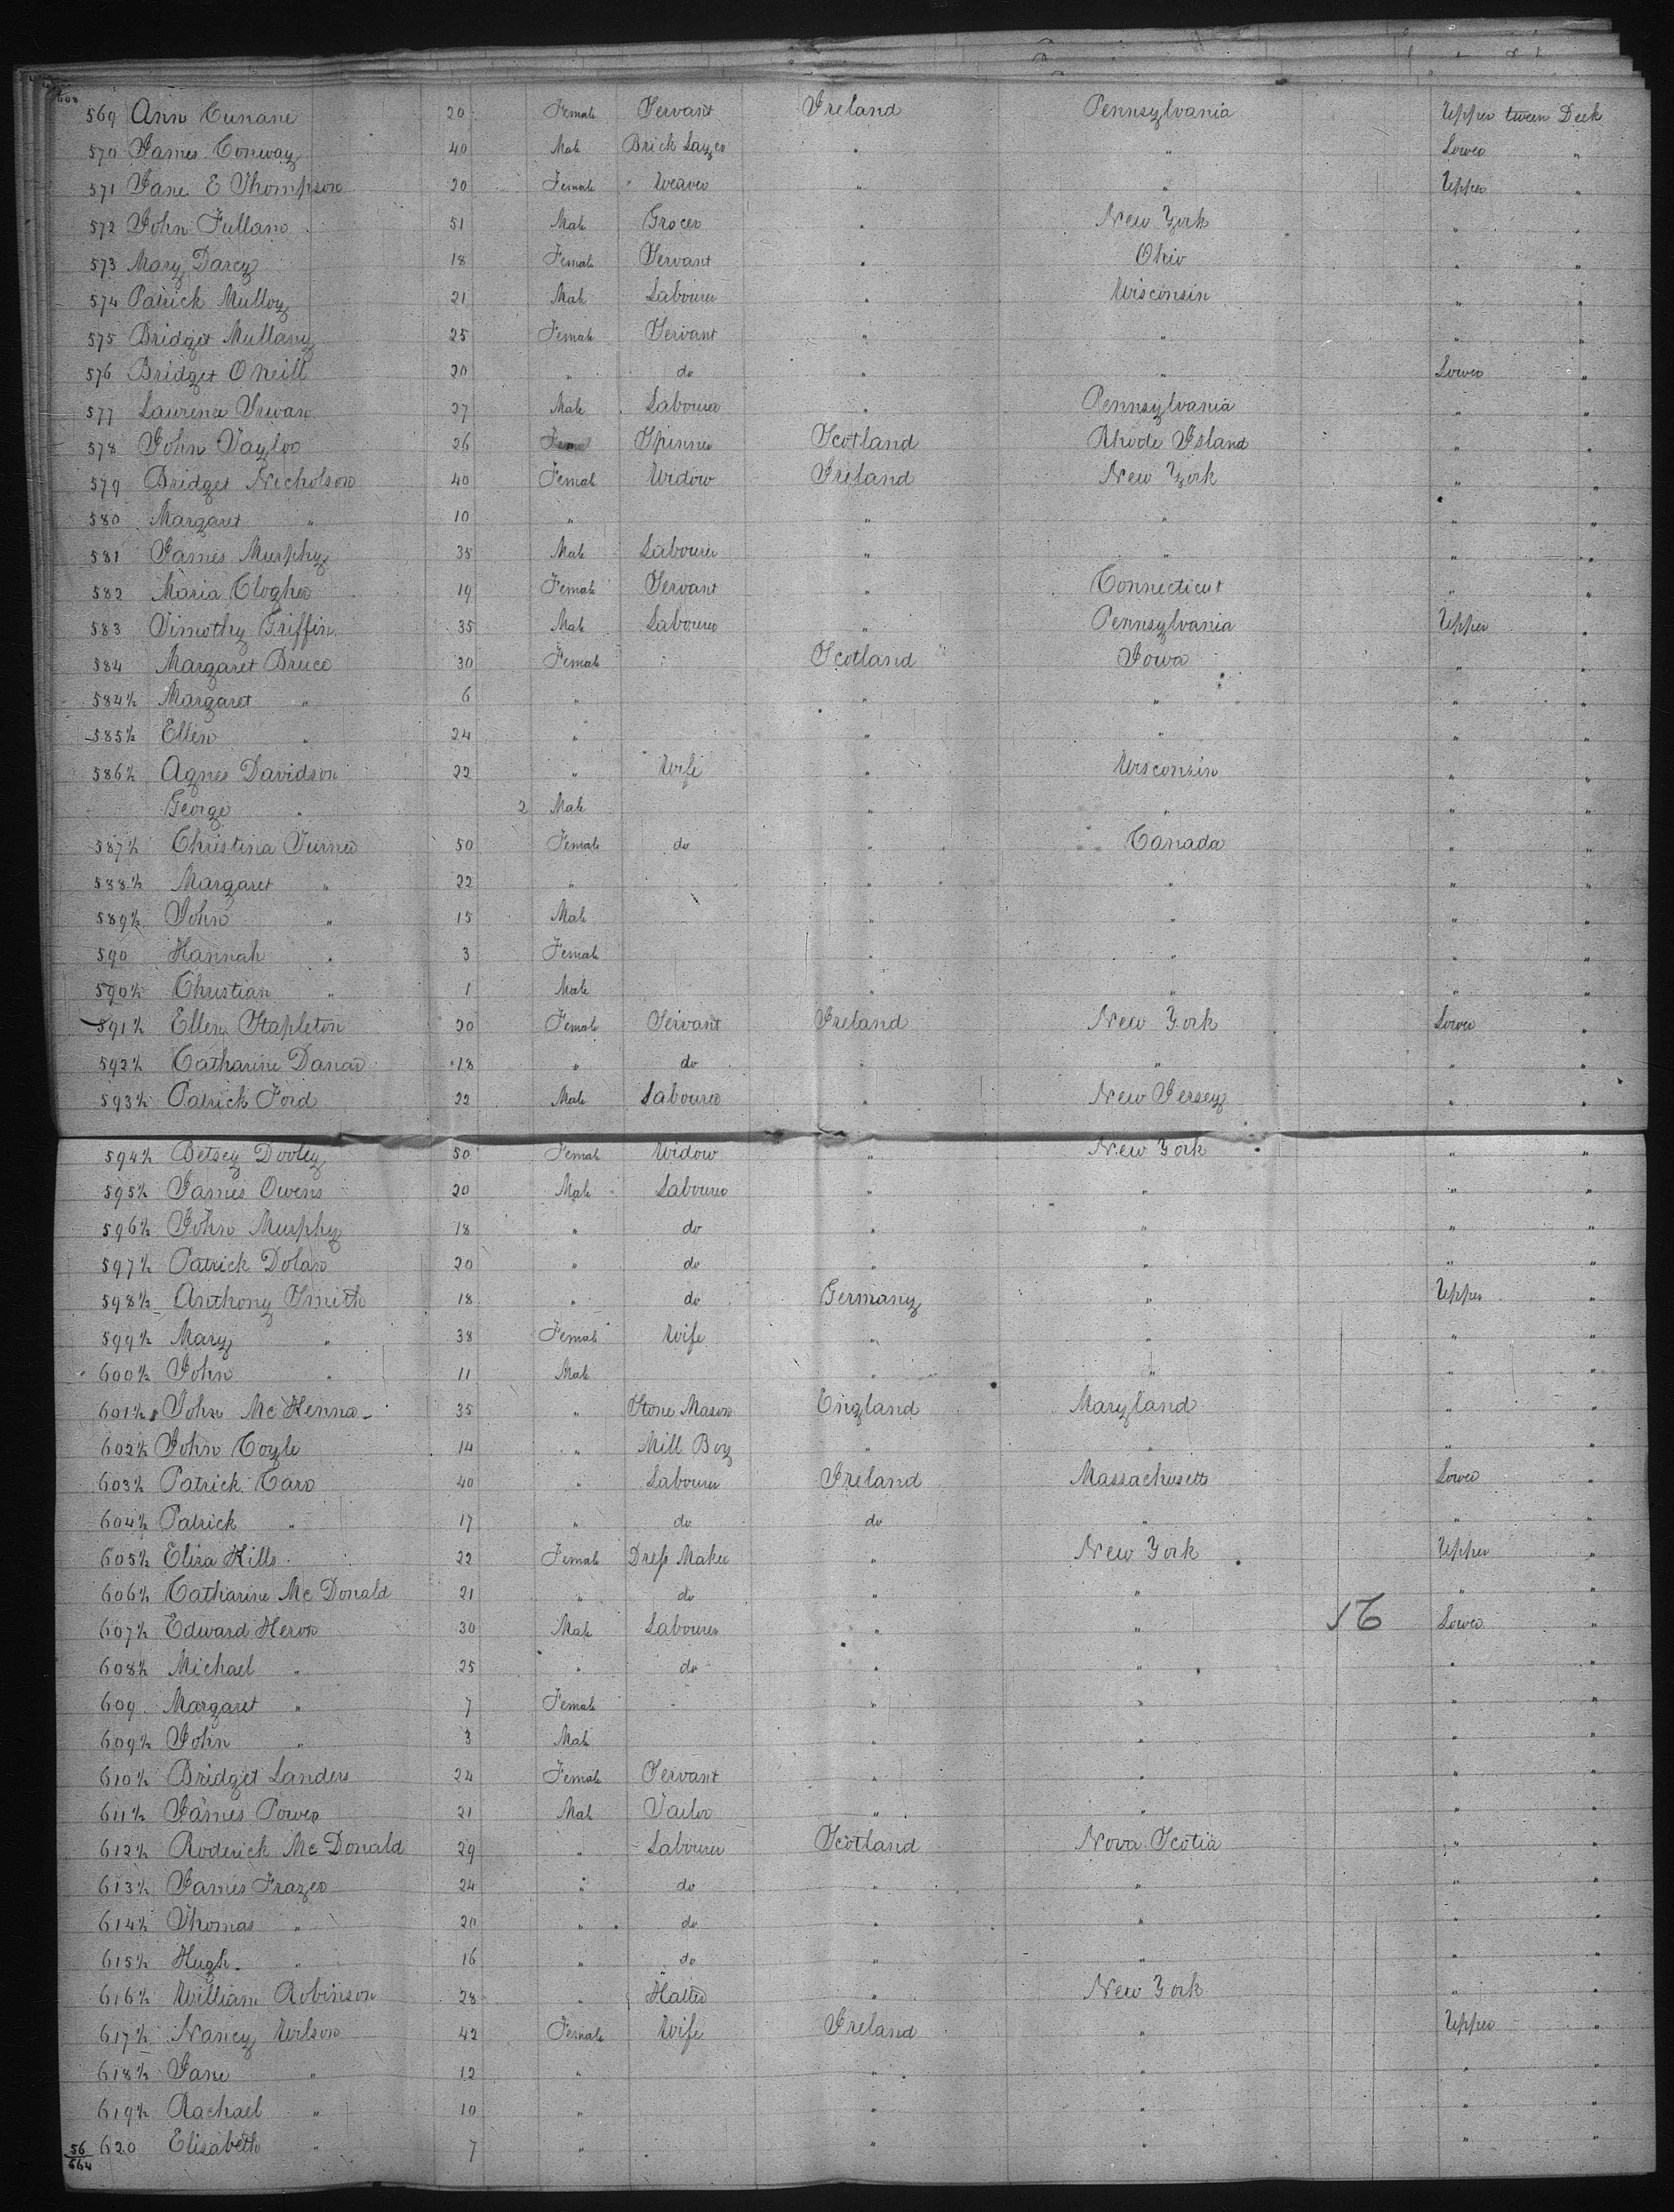 608
569 Ann Cunane 20 Female Servant Ireland Pennsylvania Upper tween Deck
570 James Conway 40 Male Brick Layer " " Lower "
571 Jane E Thompson 20 Female Weaver " " Upper "
572 John Fullam 51 Male Grocer " New York " "
573 Mary Darcy 18 Female Servant " Ohio " "
574 Patrick Mulloy 21 Male Labourer " Wisconsin " "
575 Bridget Mullany 25 Female Servant " " " "
576 Bridget O Neill 20 " do " " Lower "
577 Laurence 27 Male Labourer " Pennsylvania " "
578 John Taylor 26 Spinner Scotland Rhode Island " "
579 Bridget Nicholson 40 Female Widow Ireland New York " "
580 Margaret " 10 " " " " "
581 James Murphy 35 Male Labourer " " " "
582 Maria Clogher 19 Female Servant " Connecticut " "
583 Timothy Griffin 35 Male Labourer " Pennsylvania Upper "
584 Margaret Bruce 30 Female Scotland Iowa " "
584½ Margaret " 6 " " " " "
585½ Ellen " 24 " " " " "
586½ Agnes Davidson 22 " Wife " Wisconsin " "
George " 2 Male " " " "
587½ Christina Turner 50 Female do " Canada " "
588½ Margaret " 22 " " " " "
589½ John " 15 Male " " " "
590 Hannah " 3 Female " " " "
590½ Christian " 1 Male " " " "
591½ Ellen Stapleton 20 Female Servant Ireland New York Lower "
592½ Catharine 18 " do " " " "
593½ Patrick Ford 22 Male Labourer " New Jersey " "
594½ Betsey Dooley 50 Female Widow " New York " "
595½ James Owens 20 Male Labourer " " " "
596½ John Murphy 18 " do " " " "
597½ Patrick Dolan 20 " do " " " "
598½ Anthony Smith 18 " do Germany " Upper "
599½ Mary " 38 Female Wife " " " "
600½ John " 11 Male " " " "
601½ John Mc Kenna 35 " Stone Mason England Maryland " "
602½ John Coyle 14 " Mill Boy " " " "
603½ Patrick Carr 40 " Labourer Ireland Massachusetts Lower "
604½ Patrick " 17 " do do " " "
605½ Eliza Hills 22 Female Dress Maker " New York Upper "
606½ Catharine Mc Donald 21 " do " " " "
607½ Edward Heron 30 Male Labourer " " Lower "
608½ Michael " 25 " do " " " "
609 Margaret " 7 Female " " " "
609½ John " 3 Male " " " "
610½ Bridget Landers 24 Female Servant " " " "
611½ James Power 21 Male Tailor " " " "
612½ Roderick Mc Donald 29 " Labourer Scotland Nova Scotia " "
613½ James Frazer 24 " do " " " "
614½ Thomas " 20 " do " " " "
615½ Hugh " 16 " do " " " "
616½ William Robinson 28 " Hatter " New York " "
617½ Nancy Wilson 42 Female Wife Ireland " Upper "
618½ Jane " 12 " " " " "
619½ Rachael " 10 " " " " "
620 Elisabeth " 7 " " " " "
56
664